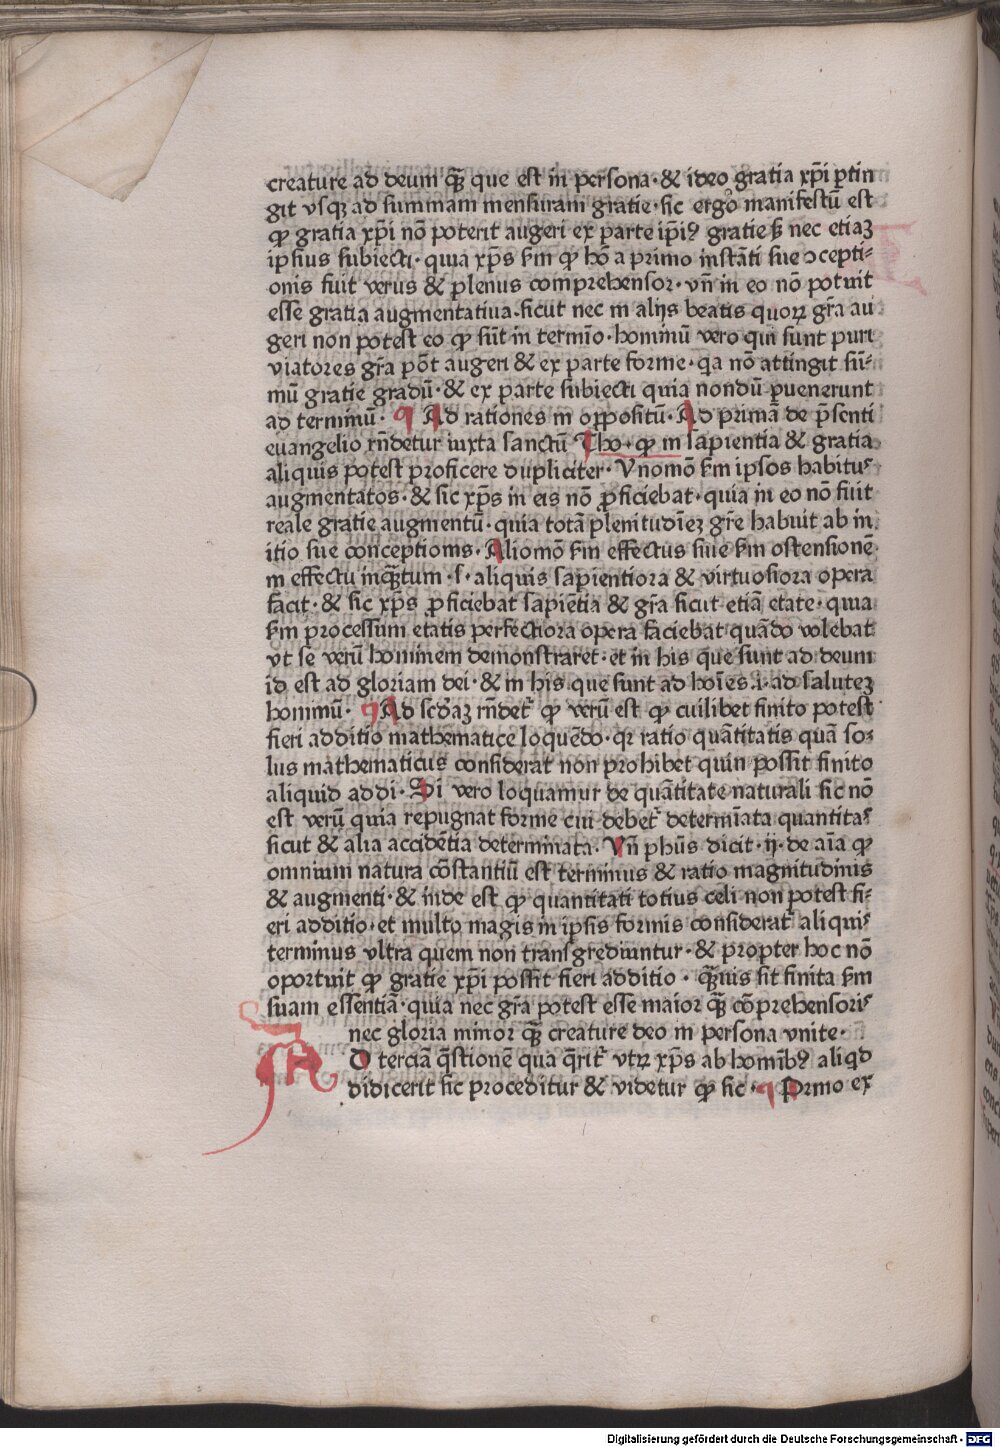 creature ad deum qꝫ̄ que est in persona·& ideo gratia xp̄i ꝑtin
git vsqꝫ ad summam mensuram gratie·sic ergo manifestū est
ꝙ gratia xp̄i nō poterit augeri ex parte ip̄iꝰ gratieß nec etiaꝫ
ipsius subiecti·quia xp̄s ẜm ꝙ hō a primo instāti sue ↄcepti⸗
onis fuit verus & plenus comprehensor·vn̄ in eo nō potuit
esse gratia augmentatiua·sicut nec in alijs beatis quoꝝ gr̄a au
geri non potest eo ꝙ sūt in termīo·hominū vero qui sunt puri
viatores gr̄a pōt augeri & ex parte forme·qa nō attingit sū⸗
mū gratie gradū·& ex parte subiecti quia nondū ꝑuenerunt
ad terminū· ¶ Ad rationes in oppositū·Ad primā de p̄senti
euangelio rn̄detur iuxta sanctū Tho·ꝙ in sapientia & gratia
aliquis potest proficere dupliciter·Vnomō ẜm ipsos habitus
augmentatos·& sic xp̄s in eis nō ꝓficiebat·quia in eo nō fuit
reale gratie augmentū·quia totā plenitudīeꝫ gr̄e habuit ab in
itio sue conceptionis·Aliomō ẜm effectus siue ẜm ostensionē
in effectu inqꝫ̄tum·s·aliquis sapientiora & virtuosiora opera
facit·& sic xp̄s ꝓficiebat sapiētia & gr̄a sicut etiā etate·quia
ẜm processum etatis perfectiora opera faciebat quādo volebat
vt se verū hominem demonstraret·et in his que sunt ad deum
id est ad gloriam dei·& in his que sunt ad hoīes·i·ad saluteꝫ
hominū· ¶ Ad scd̄aꝫ rn̄det᷑ ꝙ verū est ꝙ cuilibet finito potest
fieri additio mathematice loquēdo·qꝛ ratio quātitatis quā so⸗
lus mathematicus considerat non prohibet quin possit finito
aliquid addi·Si vero loquamur de quātitate naturali sic nō
est verū quia repugnat forme cui debet᷑ determīata quantitas
sicut & alia accidētia determinata·Vn̄ ph̄us dicit·ij·de aīa ꝙ
omnium natura cōstantiū est terminus & ratio magnitudinis
& augmenti·& inde est ꝙ quantitati totius celi non potest fi⸗
eri additio·et multo magis in ipsis formis considerat᷑ aliquis
terminus vltra quem non transgrediuntur·& propter hoc nō
oportuit ꝙ gratie xp̄i possit fieri additio·qꝫ̄uis sit finita ẜm
suam essentiā·quia nec gr̄a potest esse maior qꝫ̄ cōprehensoris
nec gloria minor qꝫ̄ creature deo in persona vnite·
AD terciā q̄stionē qua q̄rit᷑ vtꝝ xp̄s ab homībꝰ aliqd
didicerit sic proceditur & videtur ꝙ sic·¶ Primo ex
Digitalisierung gefördert durch die Deutsche Forschungsgemeinschaft - DFG